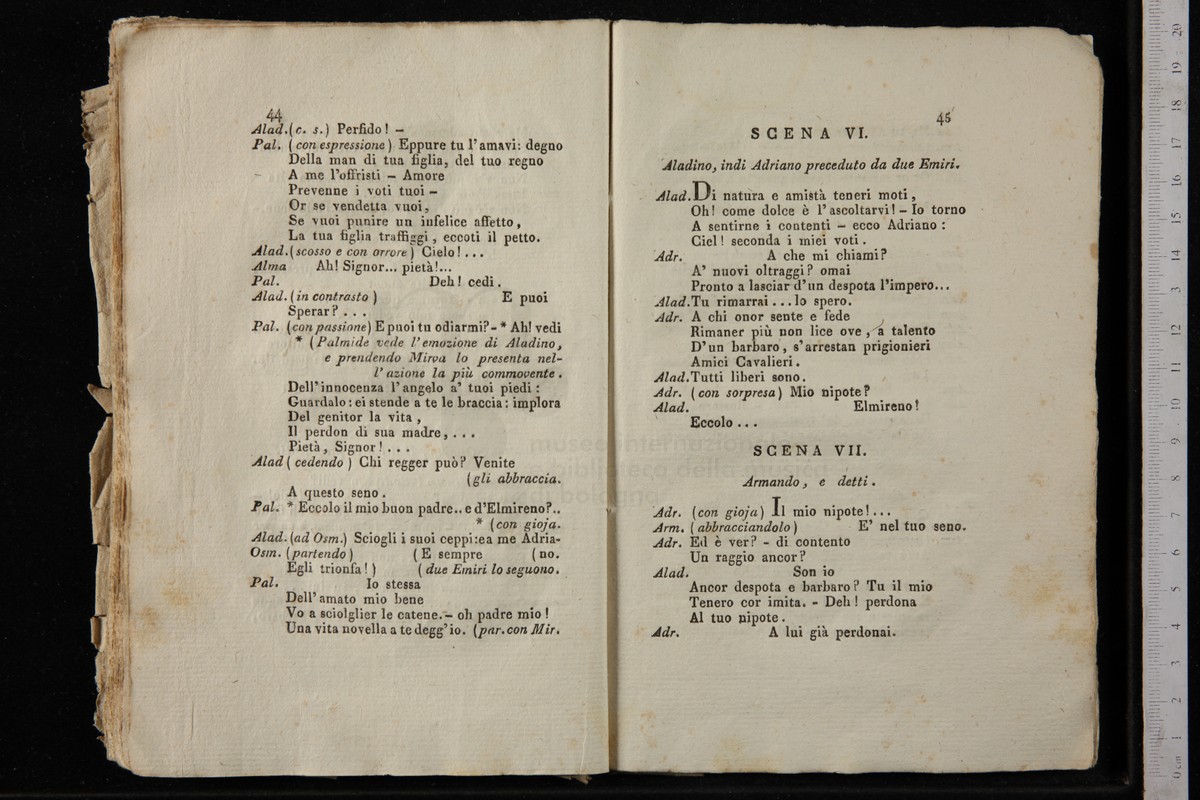 44
Alad.(c. s.) Perfido! –
Pal. (con espressione) Eppure tu l'amavi: degno
Della man di tua figlia, del tuo regno
A me l'offristi – Amore
Prevenne i voti tuoi –
Or se vendetta vuoi,
Se vuoi punire un infelice affetto,
La tua figlia traffiggi, eccoti il petto.
Alad.(scosso e con orrore) Cielo!...
Alma Ah! Signor... pietà!...
Pal. Deh! cedi.
Alad. (in contrasto) E puoi
Sperar?...
Pal. (con passione) E puoi tu odiarmi? – * Ah! vedi
* (Palmide vede l'emozione di Aladino,
e prendendo Mirva lo presenta nel-
l'azione la più commovente.
Dell'innocenza l'angelo a' tuoi piedi:
Guardalo: ei stende a te le braccia: implora
Del genitor la vita,
Il perdon di sua madre,...
Pietà, Signor!...
Alad (cedendo) Chi regger può? Venite
(gli abbraccia.
A questo seno.
Pal. * Eccolo il mio buon padre.. e d'Elmireno?..
* (con gioja.
Alad. (ad Osm.) Sciogli i suoi ceppi:ea me Adria-
Osm. (partendo) (E sempre (no.
Egli trionfa!) (due Emiri lo seguono.
Pal. Io stessa
Dell'amato mio bene
Vo a sciolglier le catene. – oh padre mio!
Una vita novella a te degg'io. (par.con Mir.
45
SCENA VI.
Aladino, indi Adriano preceduto da due Emiri.
Alad. Di natura e amistà teneri moti,
Oh! come dolce è l'ascoltarvi! – Io torno
A sentirne i contenti – ecco Adriano:
Ciel! seconda i miei voti.
Adr. A che mi chiami?
A' nuovi oltraggi? omai
Pronto a lasciar d'un despota l'impero...
Alad.Tu rimarrai...lo spero.
Adr. A chi onor sente e fede
Rimaner più non lice ove, a talento
D'un barbaro, s'arrestan prigionieri
Amici Cavalieri.
Alad.Tutti liberi sono.
Adr. (con sorpresa) Mio nipote?
Alad. Elmireno!
Eccolo...
SCENA VII.
Armando, e detti.
Adr. (con gioja) Il mio nipote!...
Arm. (abbracciandolo) E' nel tuo seno.
Adr. Ed è ver? – di contento
Un raggio ancor?
Alad. Son io
Ancor despota e barbaro? Tu il mio
Tenero cor imita. – Deh! perdona
Al tuo nipote.
Adr. A lui già perdonai.
museo internazionale
e biblioteca della musica
di bologna
0 cm 1 2 3 4 5 6 7 8 9 10 11 12 13 14 15 16 17 18 19 20